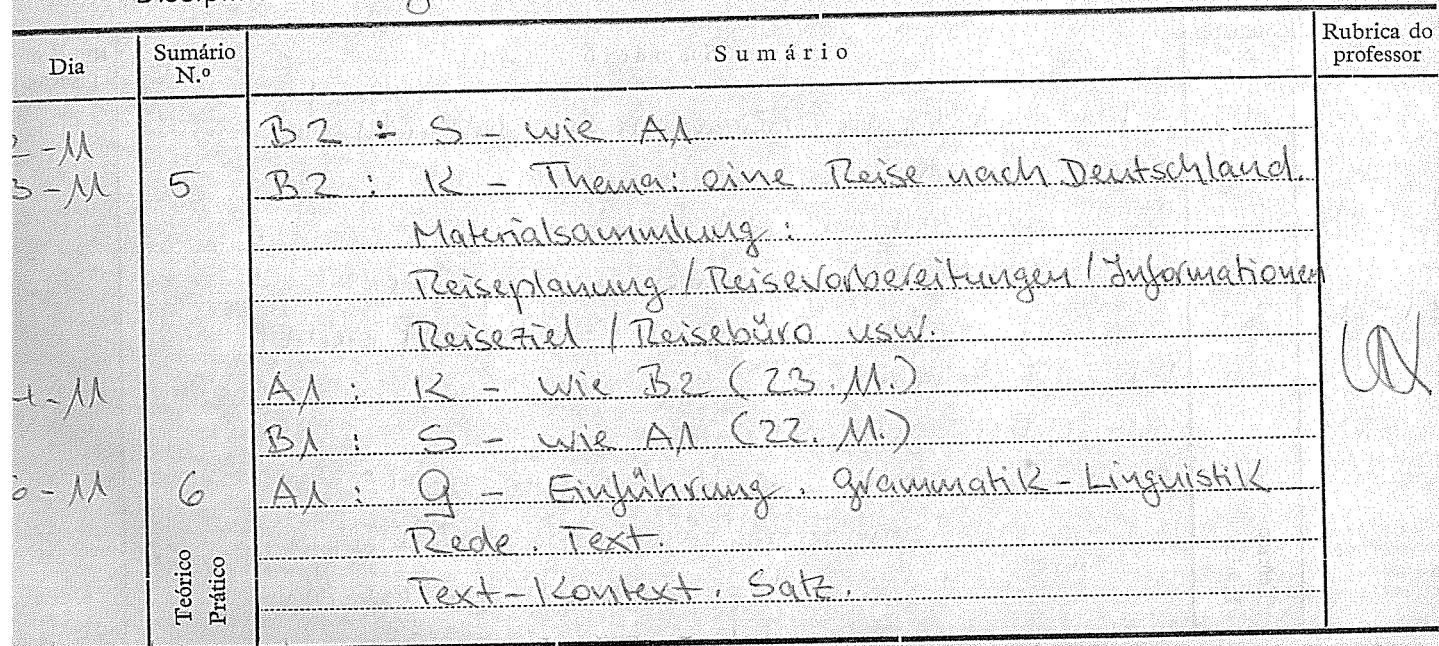 Dia
Sumário N.º
Sumário
Rubrica do professor
2-11 B2 : S - wie A1
3-11 5 B2 : K - Thema: eine Reise nach Deutschland.
Materialsammlung :
Reiseplanung / Reisevorbereitungen / Informationen
Reiseziel / Reisebüro usw.
4-11 A1 : K - wie B2 (23.11.)
B1 : S - wie A1 (22.11.)
6-11 6 A1 : G - Einführung. Grammatik-Linguistik
Rede. Text.
Text-Kontext. Satz.
Teórico
Prático